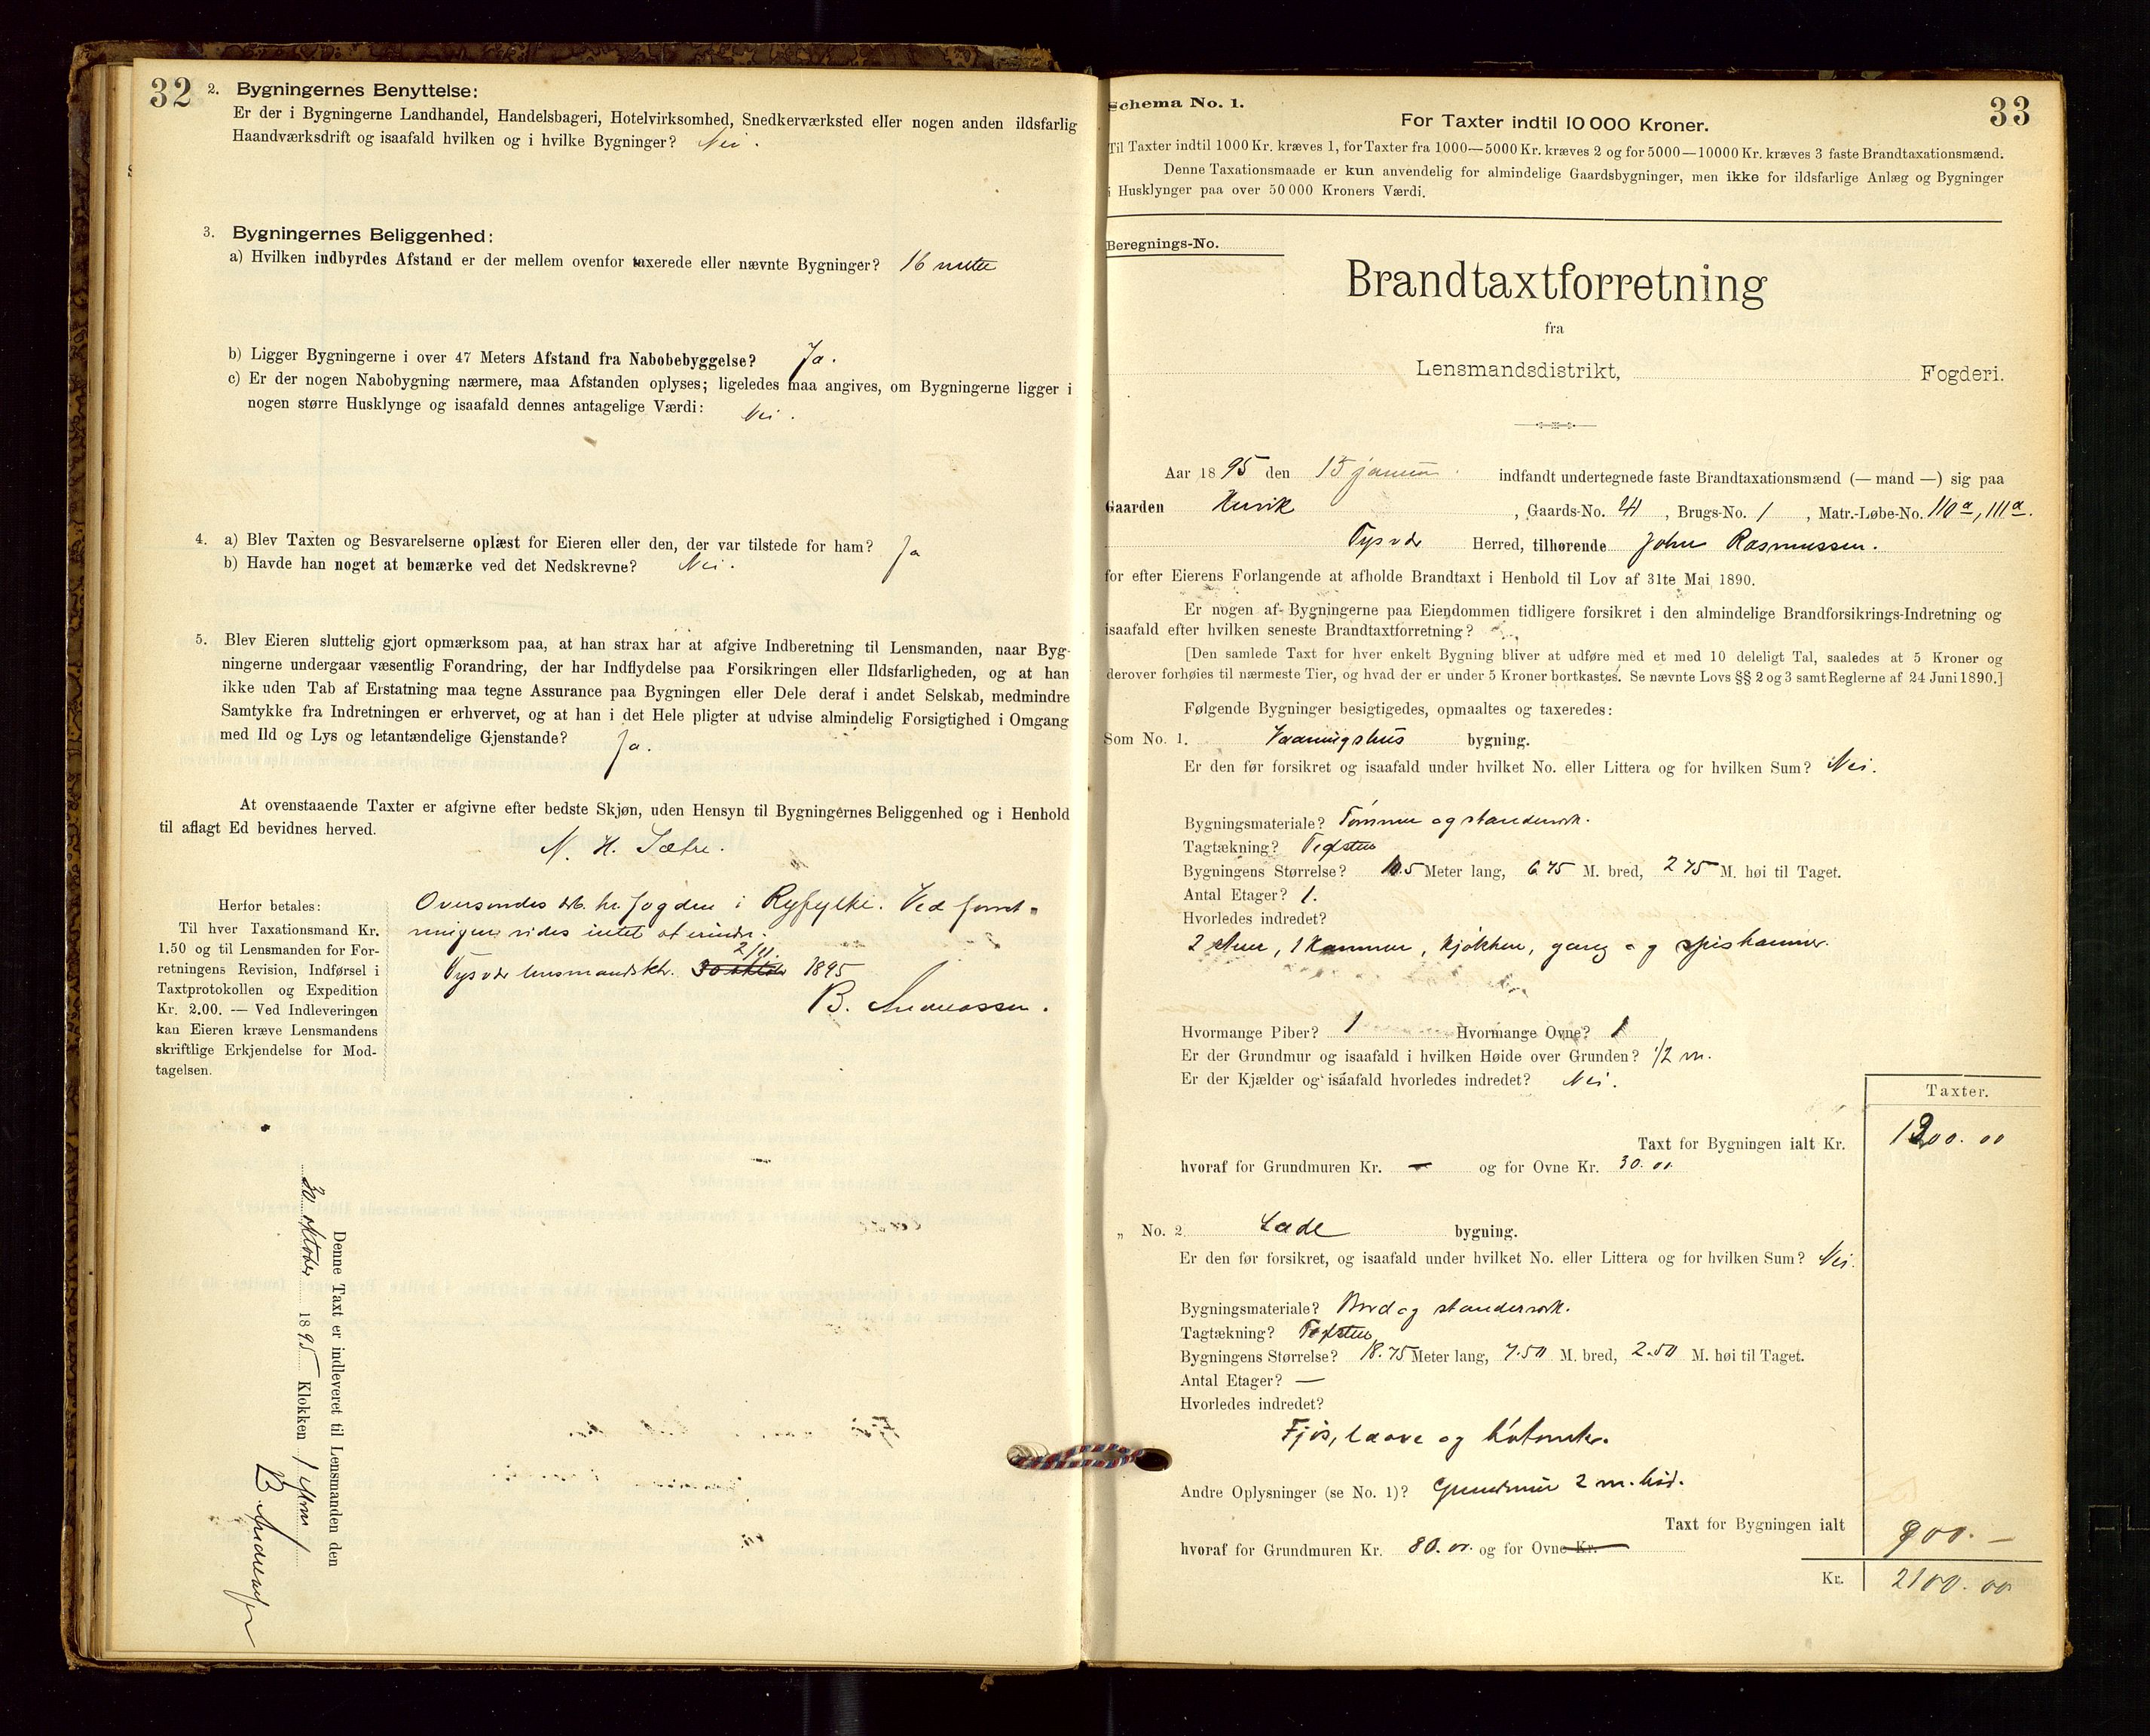 32
2. Bygningernes Benyttelse:
Er der i Bygningerne Landhandel, Handelsbageri, Hotelvirksomhed, Snedkerværksted eller nogen anden ildsfarlig
Haandværksdrift og isaafald hvilken og i hvilke Bygninger? Nei.
3. Bygningernes Beliggenhed:
a) Hvilken indbyrdes Afstand er der mellem ovenfor taxerede eller nævnte Bygninger? 16 meter
b) Ligger Bygningerne i over 47 Meters Afstand fra Nabobebyggelse? Ja.
c) Er der nogen Nabobygning nærmere, maa Afstanden oplyses; ligeledes maa angives, om Bygningerne ligger i
nogen større Husklynge og isaafald dennes antagelige Værdi: Nei.
4. a) Blev Taxten og Besvarelserne oplæst for Eieren eller den, der var tilstede for ham? Ja
b) Havde han noget at bemærke ved det Nedskrevne? Nei.
5. Blev Eieren sluttelig gjort opmærksom paa, at han strax har at afgive Indberetning til Lensmanden, naar Byg-
ningerne undergaar væsentlig Forandring, der har Indflydelse paa Forsikringen eller Ildsfarligheden, og at han
ikke uden Tab af Erstatning maa tegne Assurance paa Bygningen eller Dele deraf i andet Selskab, medmindre
Samtykke fra Indretningen er erhvervet, og at han i det Hele pligter at udvise almindelig Forsigtighed i Omgang
med Ild og Lys og letantændelige Gjenstande? Ja.
At ovenstaaende Taxter er afgivne efter bedste Skjøn, uden Hensyn til Bygningernes Beliggenhed og i Henhold
til aflagt Ed bevidnes herved.
N. H. Sætre.
Herfor betales:
Til hver Taxationsmand Kr.
1.50 og til Lensmanden for For-
retningens Revision, Indførsel i
Taxtprotokollen og Expedition
Kr. 2.00. — Ved Indleveringen
kan Eieren kræve Lensmandens
skriftlige Erkjendelse for Mod-
tagelsen.
Oversendes hr. fogden i Ryfylke. Ved forret-
ningen vides intet at erindre.
2/11.
Tysvær lensmandsktr. 30 oktober 1895
B. Andreassen.
Denne Taxt er indleveret til Lensmanden den
30 oktober 1895 Klokken 1 eftm
B. Andreassen
33
Schema No. 1.
For Taxter indtil 10 000 Kroner.
Til Taxter indtil 1000 Kr. kræves 1, for Taxter fra 1000—5000 Kr. kræves 2 og for 5000—10000 Kr. kræves 3 faste Brandtaxationsmænd.
Denne Taxationsmaade er kun anvendelig for almindelige Gaardsbygninger, men ikke for ildsfarlige Anlæg og Bygninger
i Husklynger paa over 50 000 Kroners Værdi.
Beregnings-No.
Brandtaxtforretning
fra
Lensmandsdistrikt, Fogderi.
Aar 1895 den 15 januar. indfandt undertegnede faste Brandtaxationsmænd (— mand —) sig paa
Gaarden Husvik, Gaards-No. 41, Brugs-No. 1, Matr.-Løbe-No. 110a, 111a.
Tysvær Herred, tilhørende John Rasmussen.
for efter Eierens Forlangende at afholde Brandtaxt i Henhold til Lov af 31te Mai 1890.
Er nogen af Bygningerne paa Eiendommen tidligere forsikret i den almindelige Brandforsikrings-Indretning og
isaafald efter hvilken seneste Brandtaxtforretning?
[Den samlede Taxt for hver enkelt Bygning bliver at udføre med et med 10 deleligt Tal, saaledes at 5 Kroner og
derover forhøies til nærmeste Tier, og hvad der er under 5 Kroner bortkastes. Se nævnte Lovs §§ 2 og 3 samt Reglerne af 24 Juni 1890.]
Følgende Bygninger besigtigedes, opmaaltes og taxeredes:
Som No. 1. Vaaningshus bygning.
Er den før forsikret og isaafald under hvilket No. eller Littera og for hvilken Sum? Nei.
Bygningsmateriale? Tømmer og standerverk.
Tagtækning? Teglsten
Bygningens Størrelse? 10.5 Meter lang, 6.75 M. bred, 2.75 M. høi til Taget.
Antal Etager? 1.
Hvorledes indredet?
2 stuer, 1 kammer, kjøkken, gang og spiskammer.
Hvormange Piber? 1 Hvormange Ovne? 1
Er der Grundmur og isaafald i hvilken Høide over Grunden? 1/2 m.
Er der Kjælder og isaafald hvorledes indredet? Nei.
Taxter.
Taxt for Bygningen ialt Kr. 1200.00
hvoraf for Grundmuren Kr. — og for Ovne Kr. 30.00
„ No. 2 Lade bygning.
Er den før forsikret, og isaafald under hvilket No. eller Littera og for hvilken Sum? Nei.
Bygningsmateriale? Bord og standerverk.
Tagtækning? Teglsten
Bygningens Størrelse? 18.75 Meter lang, 7.50 M. bred, 2.50 M. høi til Taget.
Antal Etager? —
Hvorledes indredet?
Fjøs, laave og
Andre Oplysninger (se No. 1)? Grundmur 2 m. høi.
Taxt for Bygningen ialt 900.—
hvoraf for Grundmuren Kr. 80.00 og for Ovne Kr.
Kr. 2100.00